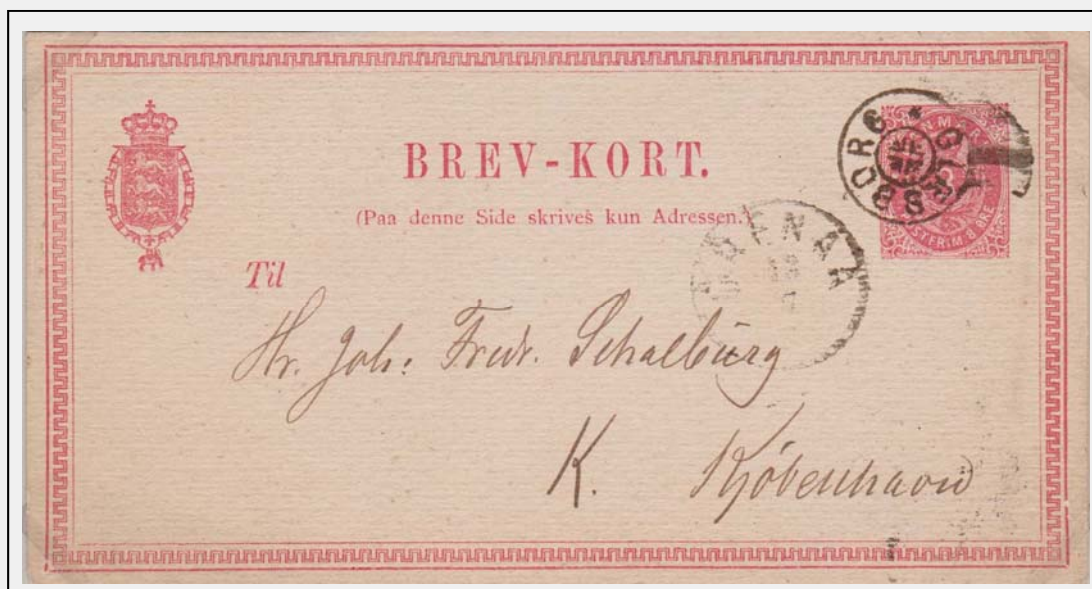 BREV-KORT.
(Paa denne Side skrives kun Adressen.)
Til
Hr. Joh: Fredr. Schalburg
K. Kjøbenhavn
SBORG
8 ØRE